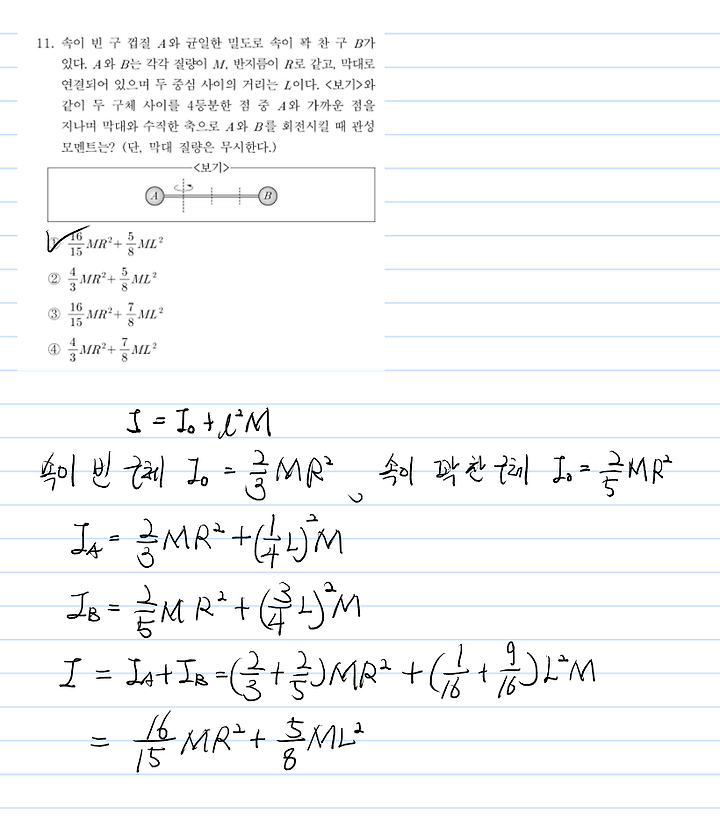 11. 속이 빈 구 껍질 A와 균일한 밀도로 속이 꽉 찬 구 B가
있다. A와 B는 각각 질량이 M, 반지름이 R로 같고, 막대로
연결되어 있으며 두 중심 사이의 거리는 L이다. <보기>와
같이 두 구체 사이를 4등분한 점 중 A와 가까운 점을
지나며 막대와 수직한 축으로 A와 B를 회전시킬 때 관성
모멘트는? (단, 막대 질량은 무시한다.)
<보기>
A B
① 16/15 MR² + 5/8 ML²
② 4/3 MR² + 5/8 ML²
③ 16/15 MR² + 7/8 ML²
④ 4/3 MR² + 7/8 ML²
I = I₀ + l²M
속이 빈 구체 I₀ = 2/3 MR², 속이 꽉 찬 구체 I₀ = 2/5 MR²
I_A = 2/3 MR² + (1/4 L)² M
I_B = 2/5 MR² + (3/4 L)² M
I = I_A + I_B = (2/3 + 2/5) MR² + (1/16 + 9/16) L²M
= 16/15 MR² + 5/8 ML²